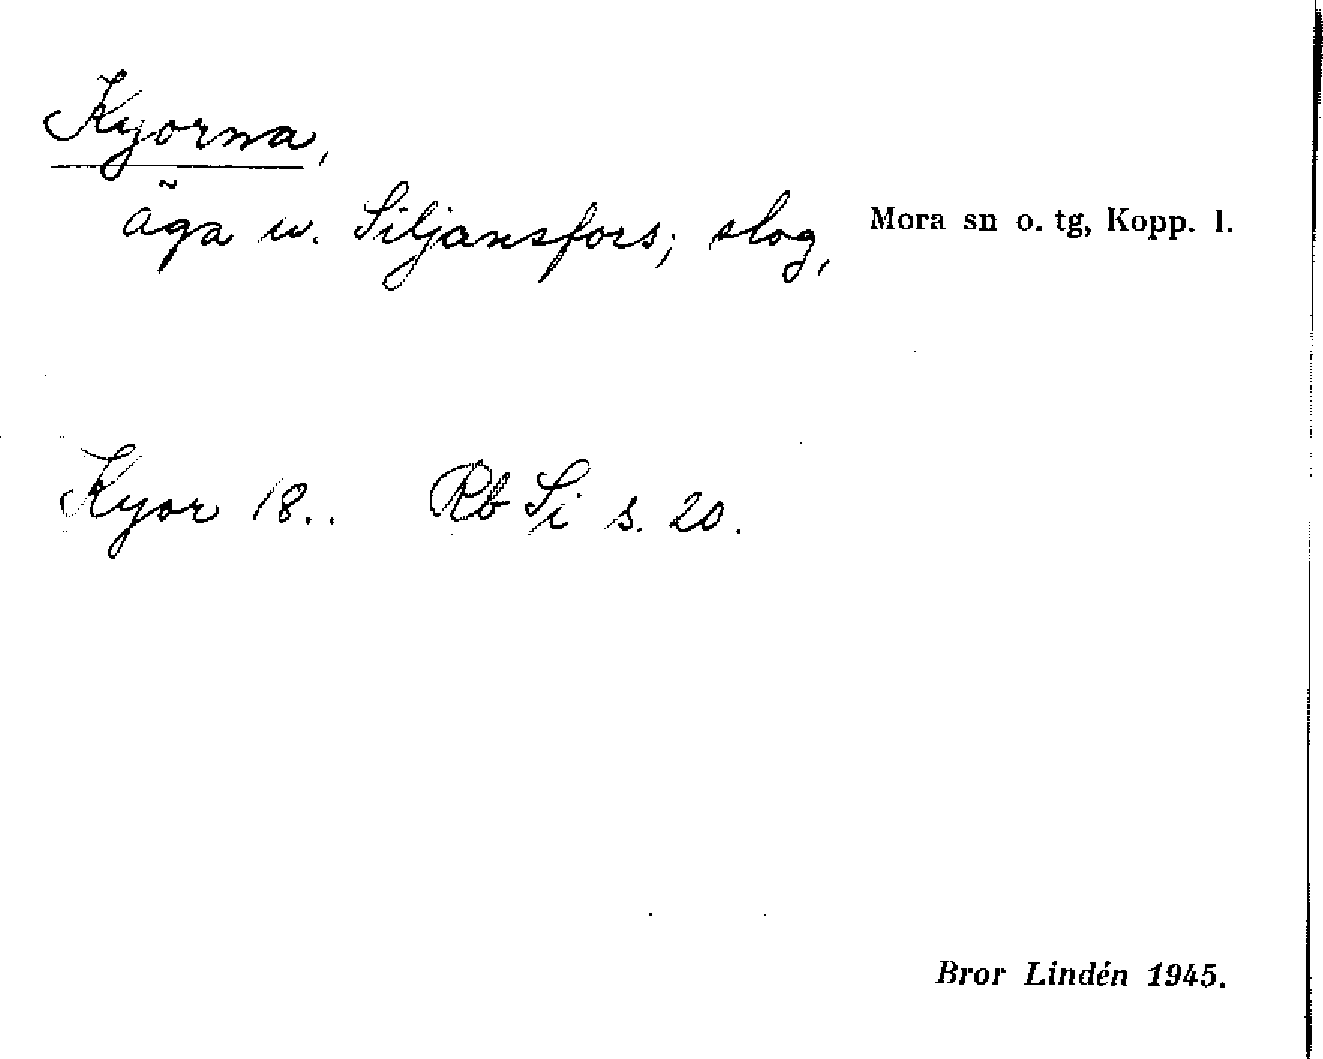 Kyorna,
äga u. Siljansfors; slog, Mora sn o. tg, Kopp. l.
Kyor 18.. Rb Si s. 20.
Bror Lindén 1945.